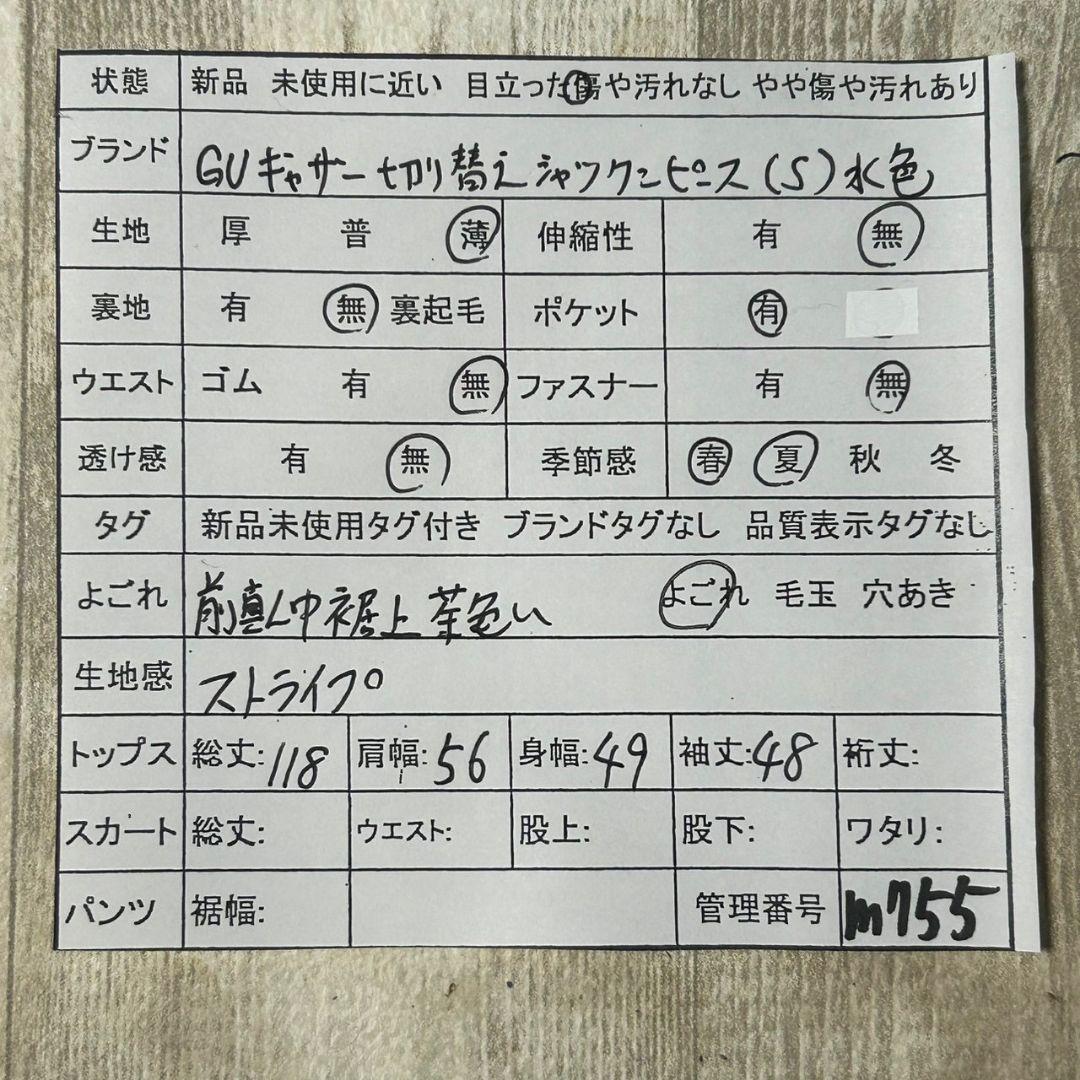 状態 新品 未使用に近い 目立った傷や汚れなし やや傷や汚れあり
ブランド GUギャザー切り替えシャツワンピース(S)水色
生地 厚 普 薄 伸縮性 有 無
裏地 有 無 裏起毛 ポケット 有
ウエスト ゴム 有 無 ファスナー 有 無
透け感 有 無 季節感 春 夏 秋 冬
タグ 新品未使用タグ付き ブランドタグなし 品質表示タグなし
よごれ 前真ん中裾上茶色い よごれ 毛玉 穴あき
生地感 ストライプ
トップス 総丈:118 肩幅:56 身幅:49 袖丈:48 裄丈:
スカート 総丈: ウエスト: 股上: 股下: ワタリ:
パンツ 裾幅: 管理番号 m755